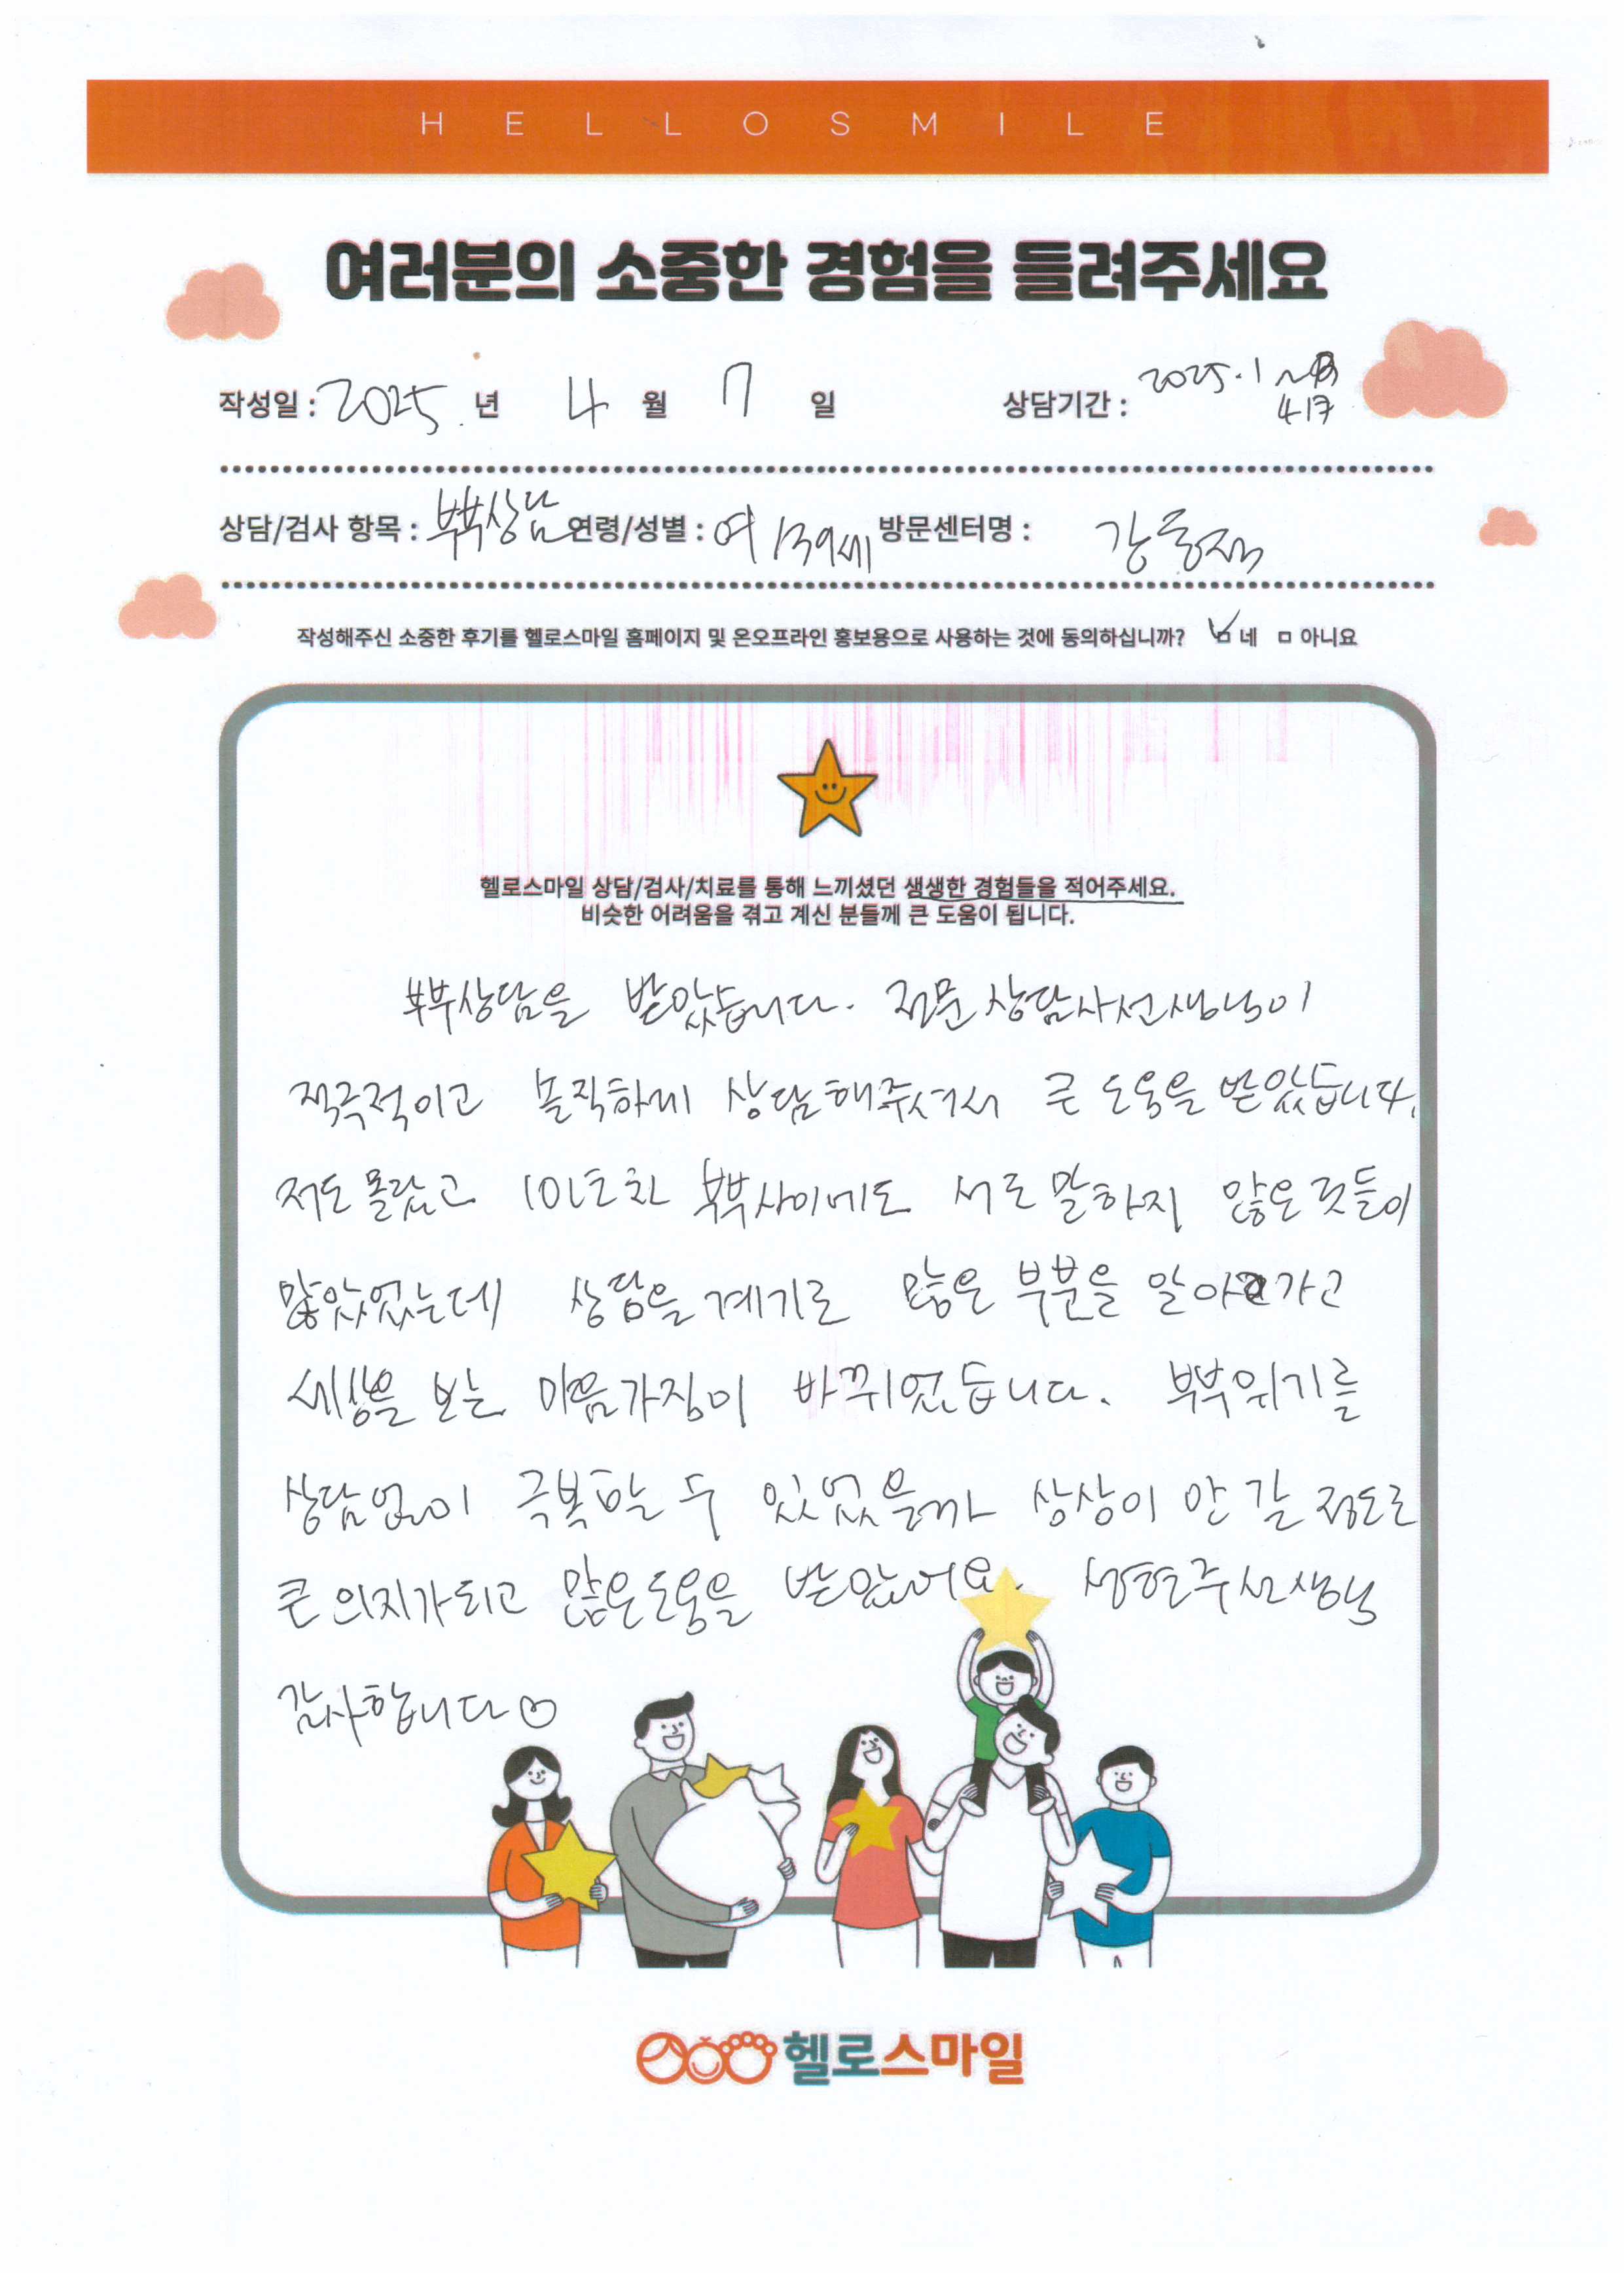 HELLOSMILE
여러분의 소중한 경험을 들려주세요
작성일 : 2025. 년 4 월 7 일 상담기간 : 2025. 1 ~
상담/검사 항목 : 부부상담 연령/성별 : 여 / 39세 방문센터명 : 강동점
작성해주신 소중한 후기를 헬로스마일 홈페이지 및 온오프라인 홍보용으로 사용하는 것에 동의하십니까? ☑ 네 □ 아니요
헬로스마일 상담/검사/치료를 통해 느끼셨던 생생한 경험들을 적어주세요.
비슷한 어려움을 겪고 계신 분들께 큰 도움이 됩니다.
부부상담을 받았습니다. 전문상담사선생님이
적극적이고 솔직하게 상담해주셔서 큰 도움을 받았습니다.
저도 몰랐고 10년차 부부사이에도 서로 말하지 않은 것들이
많았었는데 상담을 계기로 많은 부분을 알아가고
세상을 보는 마음가짐이 바뀌었습니다. 부부위기를
상담없이 극복할 수 있었을까 상상이 안 갈 정도로
큰 의지가되고 많은도움을 받았어요. 성현주선생님
감사합니다
헬로스마일